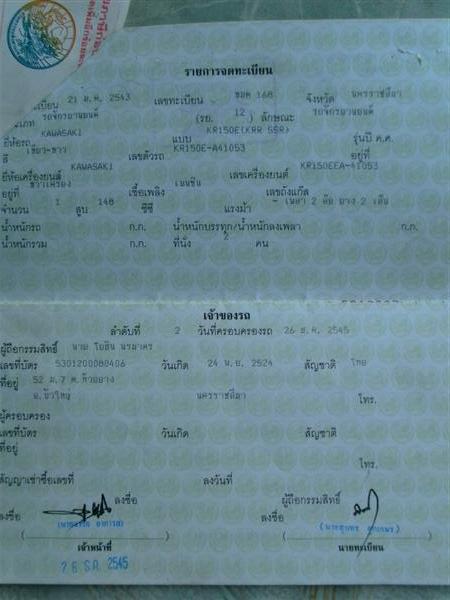 รายการจดทะเบียน
21 ม.ค. 2543 เลขทะเบียน ขยค 168 จังหวัด นครราชสีมา
รถจักรยานยนต์ (รย. 12 ) ลักษณะ รถจักรยานยนต์
ยี่ห้อรถ KAWASAKI แบบ KR150E(KRR SSR) รุ่นปี ค.ศ.
สี เขียว-ขาว เลขตัวรถ KR150E-A41053 อยู่ที่
ยี่ห้อเครื่องยนต์ KAWASAKI เลขเครื่องยนต์ KR150EEA-41053
อยู่ที่ ขวาเครื่อง เชื้อเพลิง เบนซิน เลขถังแก๊ส
จำนวน 1 สูบ 148 ซีซี แรงม้า - เพลา 2 ล้อ ยาง 2 เส้น
น้ำหนักรถ ก.ก. น้ำหนักบรรทุก/น้ำหนักลงเพลา ก.ก.
น้ำหนักรวม ก.ก. ที่นั่ง 2 คน
เจ้าของรถ
ลำดับที่ 2 วันที่ครอบครองรถ 26 ธ.ค. 2545
ผู้ถือกรรมสิทธิ์ นาย โยธิน
เลขที่บัตร 5301200080406 วันเกิด 24 พ.ย. 2524 สัญชาติ ไทย
ที่อยู่ 52 ม.7 ต.ห้วยยาง
อ.บัวใหญ่ นครราชสีมา โทร.
ผู้ครอบครอง
เลขที่บัตร วันเกิด สัญชาติ
ที่อยู่
โทร.
สัญญาเช่าซื้อเลขที่ ลงวันที่
ลงชื่อ ผู้ถือกรรมสิทธิ์
ลงชื่อ ลงชื่อ
เจ้าหน้าที่ นายทะเบียน
26 ธ.ค. 2545